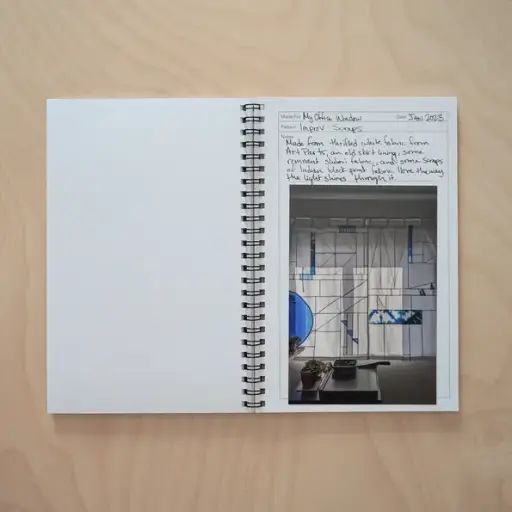 Made For My Office Window Date Jan 2023
Pattern Improv Scraps
Notes
Made from thrifted white fabric from
Art Parts, an old skirt lining, some
remnant shibori fabric, and some scraps
of indigo block print fabric. I love the way
the light shines through it.